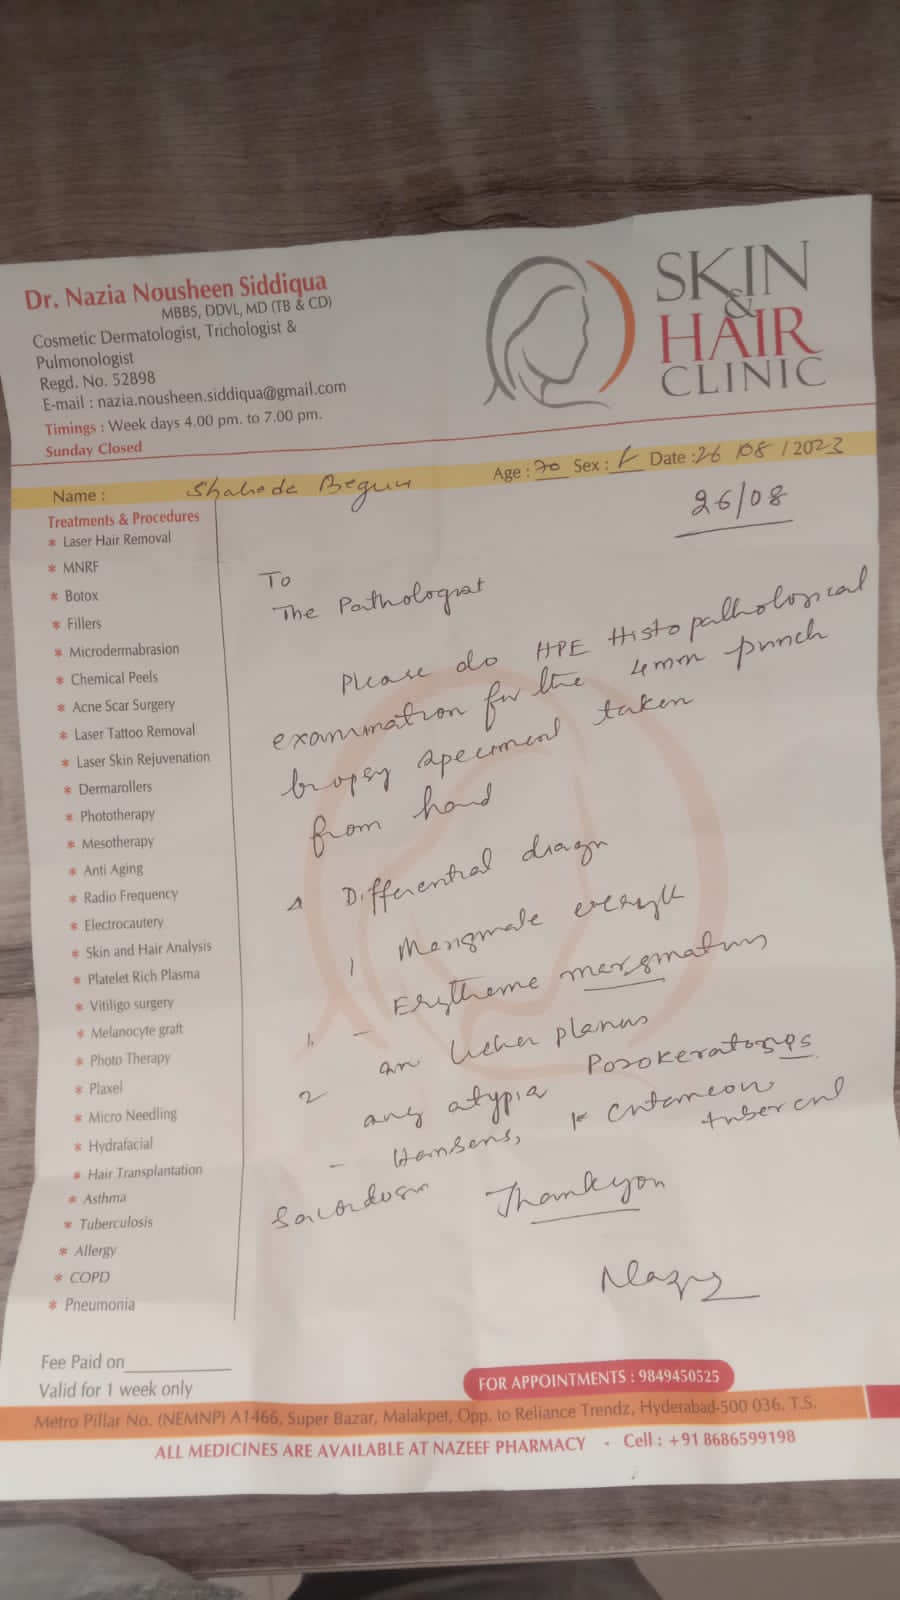 Dr. Nazia Nousheen Siddiqua
MBBS, DDVL, MD (TB & CD)
Cosmetic Dermatologist, Trichologist &
Pulmonologist
Regd. No. 52898
E-mail : nazia.nousheen.siddiqua@gmail.com
Timings : Week days 4.00 pm. to 7.00 pm.
Sunday Closed
SKIN
&
HAIR
CLINIC
Name : Shaheda Begum Age : 70 Sex : F Date : 26/08/2023
26/08
Treatments & Procedures
* Laser Hair Removal
* MNRF
* Botox
* Fillers
* Microdermabrasion
* Chemical Peels
* Acne Scar Surgery
* Laser Tattoo Removal
* Laser Skin Rejuvenation
* Dermarollers
* Phototherapy
* Mesotherapy
* Anti Aging
* Radio Frequency
* Electrocautery
* Skin and Hair Analysis
* Platelet Rich Plasma
* Vitiligo surgery
* Melanocyte graft
* Photo Therapy
* Plaxel
* Micro Needling
* Hydrafacial
* Hair Transplantation
* Asthma
* Tuberculosis
* Allergy
* COPD
* Pneumonia
To
The Pathologist
Please do HPE Histopathological
examination for the 4mm punch
biopsy speciment taken
from hand
Differential diagn
1
1. - Erytheme
2 lichen planus
any atypia Porokeratosis
- Hansens, cutaneou
tubercul
Thankyou
Fee Paid on
Valid for 1 week only
FOR APPOINTMENTS : 9849450525
Metro Pillar No. (NEMNP) A1466, Super Bazar, Malakpet, Opp. to Reliance Trendz, Hyderabad-500 036. T.S.
ALL MEDICINES ARE AVAILABLE AT NAZEEF PHARMACY - Cell : +91 8686599198